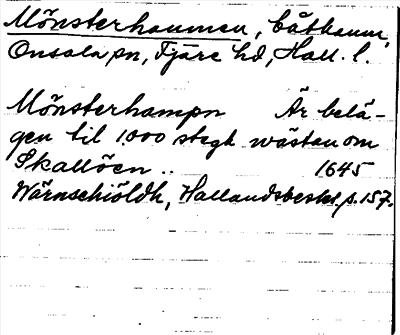 Mönsterhamnen, båthamn,
Onsala sn, Fjäre hd, Hall. l.
Mönsterhampn Är belä-
gen til 1000 stegh wästan om
Skallöen .. 1645
Wärnschiöldh, Hallandsbeskr. s. 157.